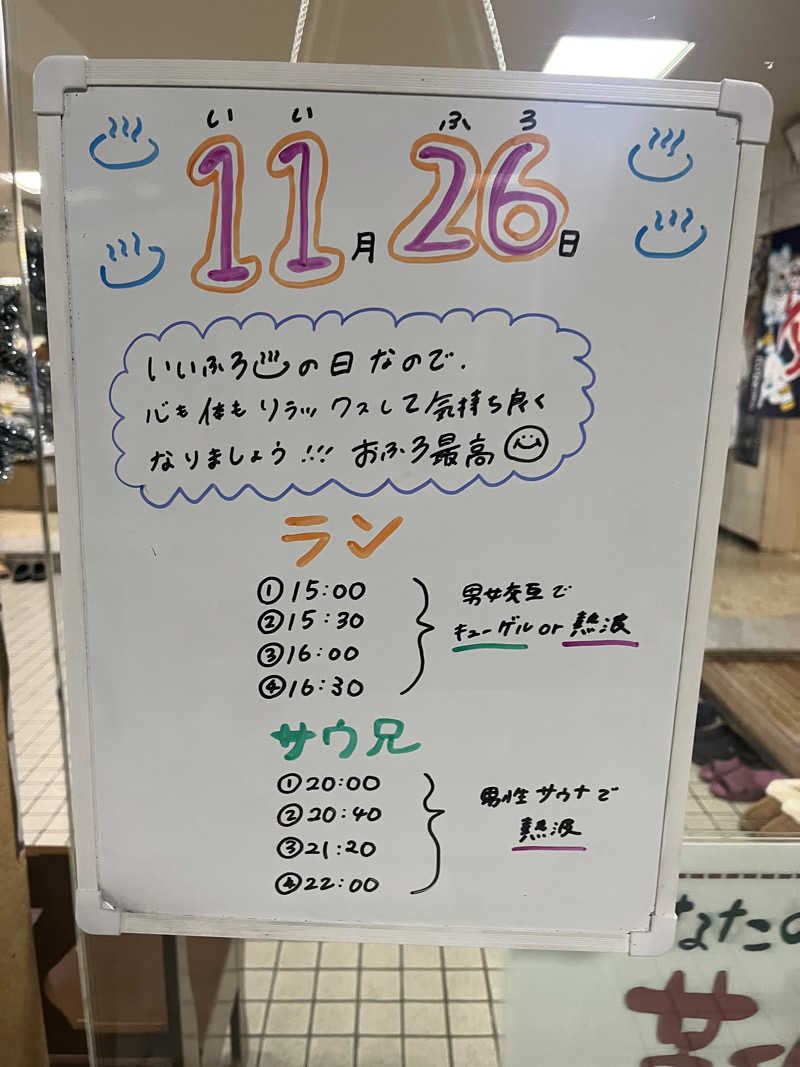 いい ふろ
11月26日
いいふろ♨の日なので.
心も体もリラックスして気持ち良く
なりましょう!!! おふろ最高
ラン
①15:00
②15:30
③16:00
④16:30
男女交互で
キューゲル or 熱波
サウ兄
①20:00
②20:40
③21:20
④22:00
男性サウナで
熱波
なたの